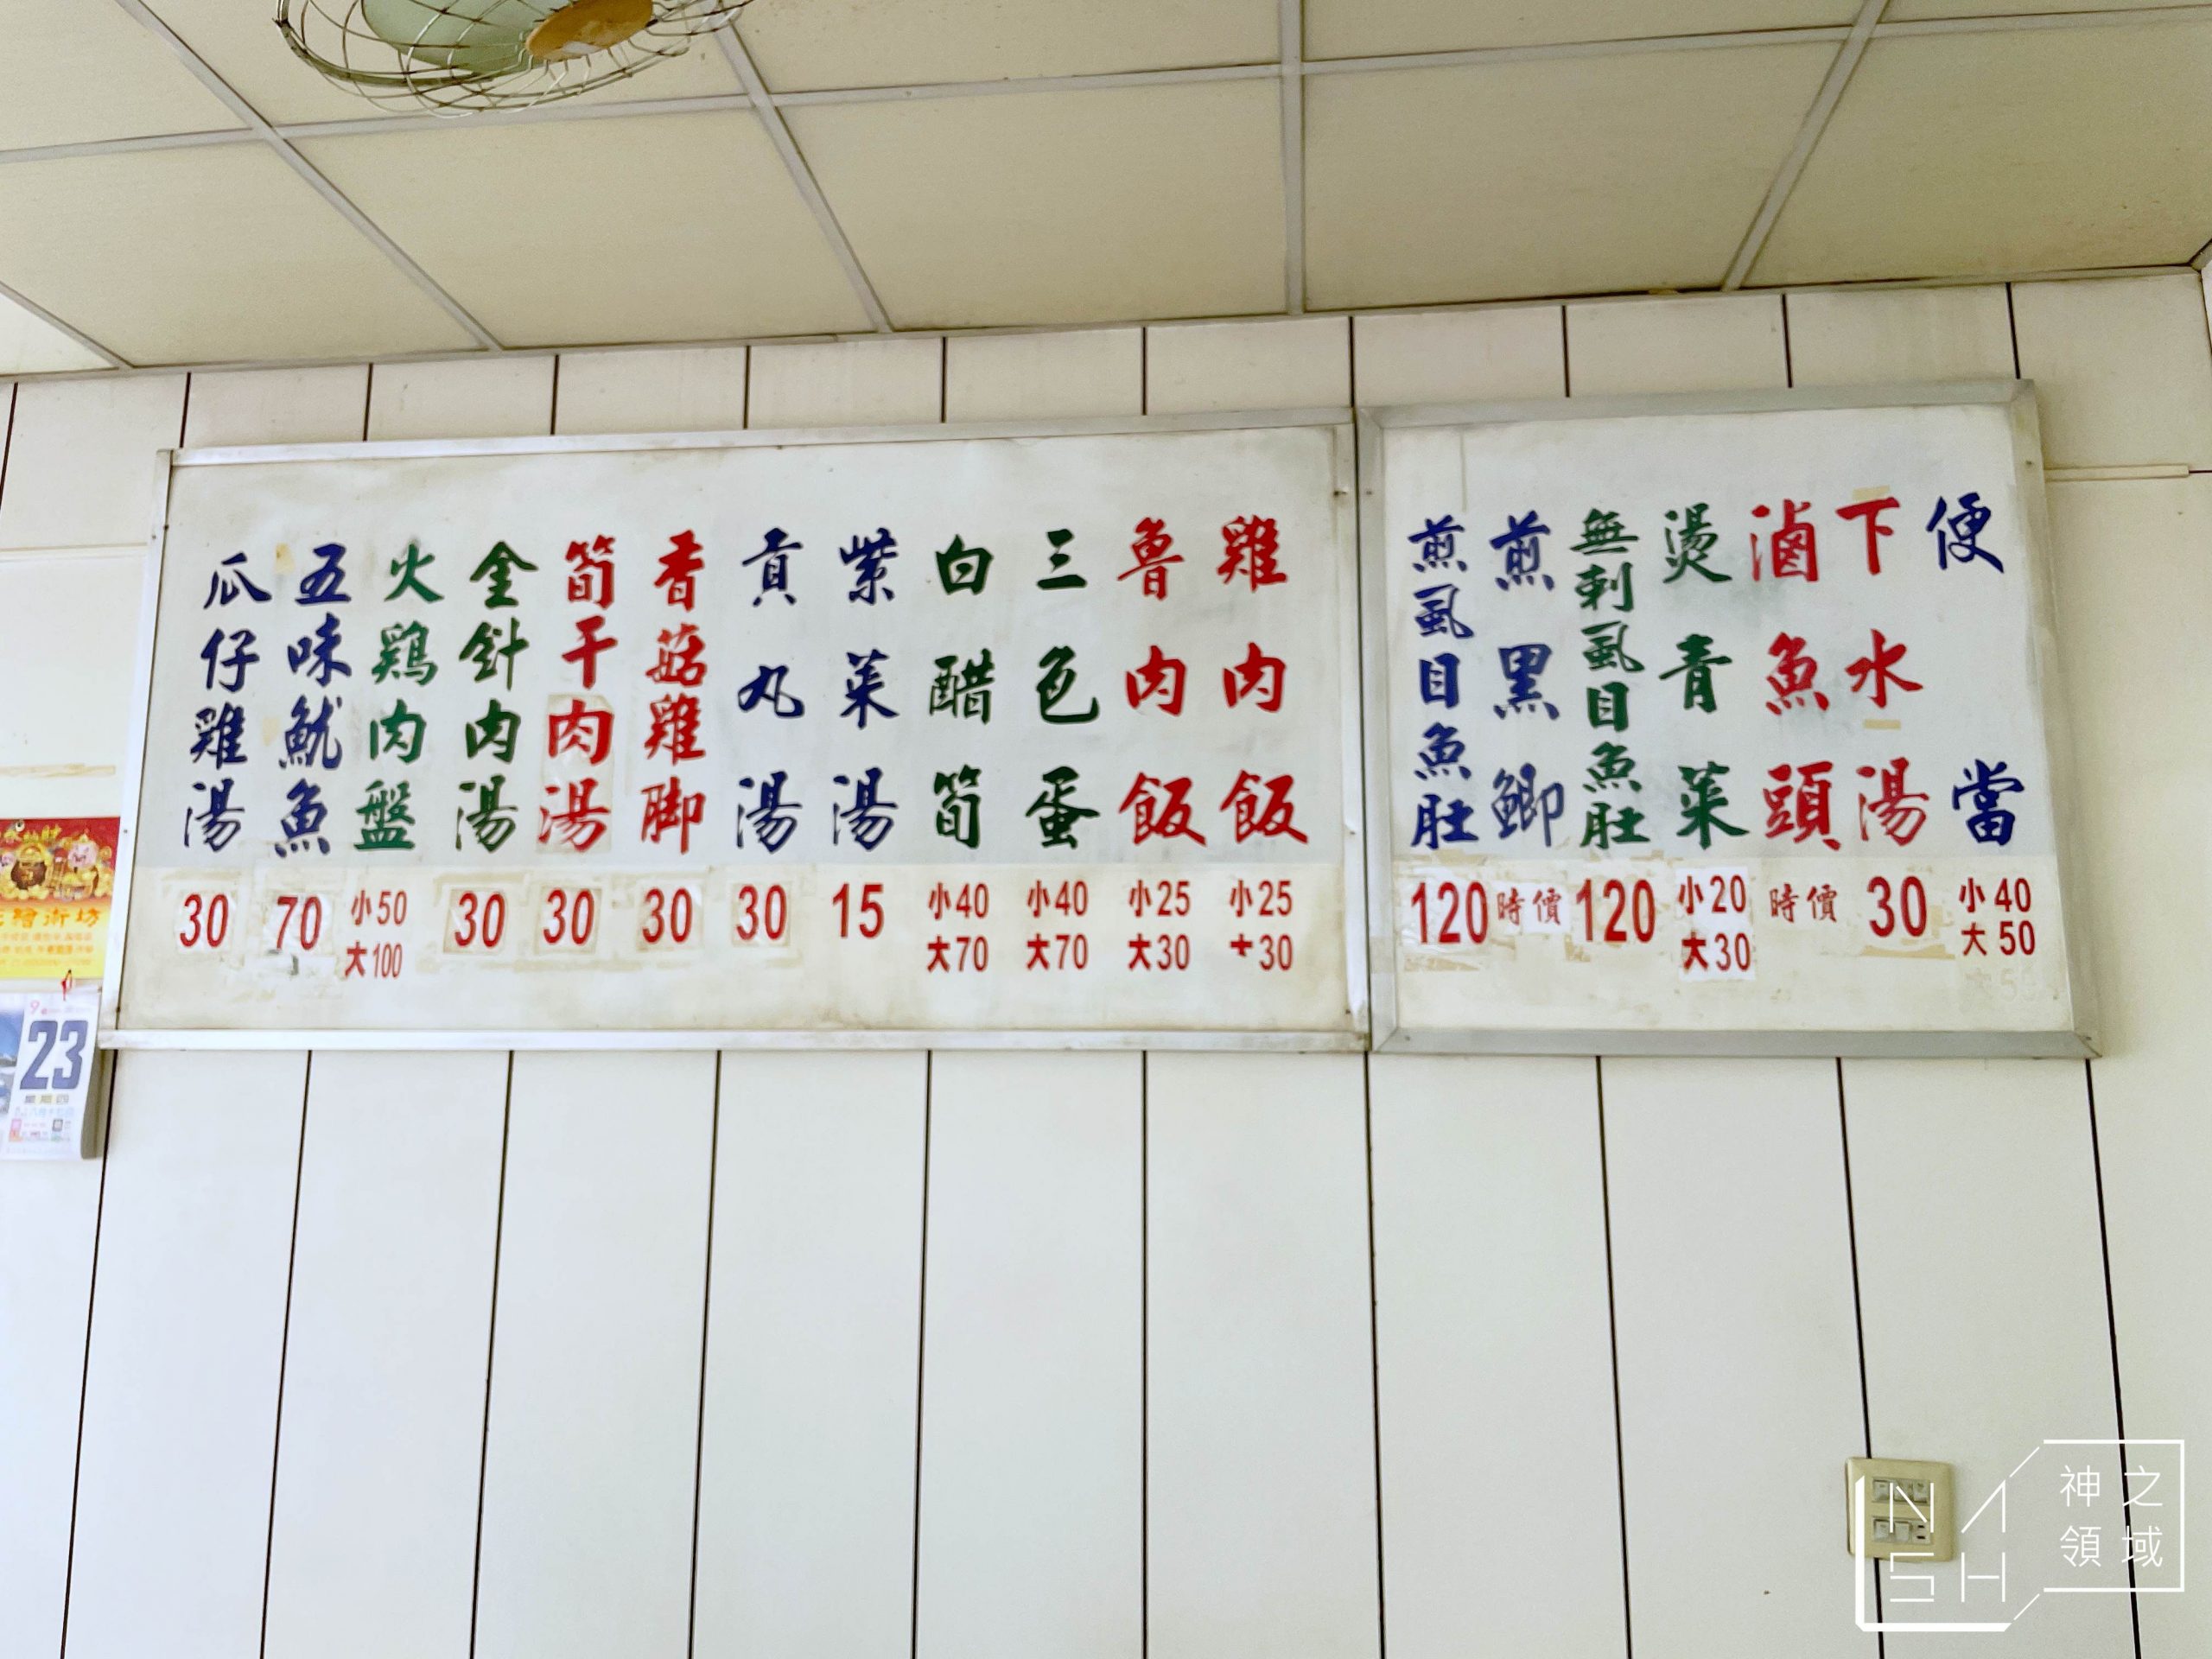 便當
小40
大50
下水湯
30
滷魚頭
時價
燙青菜
小20
大30
無刺虱目魚肚
120
煎黑鯽
時價
煎虱目魚肚
120
雞肉飯
小25
大30
魯肉飯
小25
大30
三色蛋
小40
大70
白醋筍
小40
大70
紫菜湯
15
貢丸湯
30
香菇雞脚
30
筍干肉湯
30
金針肉湯
30
火鷄肉盤
小50
大100
五味魷魚
70
瓜仔雞湯
30
9
23
星期四
NASH
神之
領域